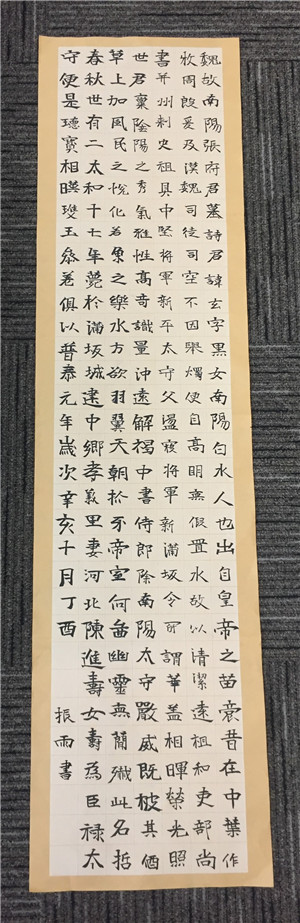 魏故南陽張府君墓誌君諱玄字黑女南陽白水人也出自皇帝之苗裔昔在中葉作
牧周殷爰及漢魏司徒司空不因舉燭便自高明無假置水故以清潔遠祖和吏部尚
書并州刺史祖具中堅將軍新平太守父盪寇將軍新蒲坂令所謂華蓋相暉榮光照
世君稟陰陽之秀氣雅性高奇識量沖遠解褐中書侍郎除南陽太守嚴威既被其猶
草上加風民之悅化若魚之樂水方欲羽翼天朝抓牙帝室何啚幽靈無簡殲此名哲
春秋世有二太和十七年薨於蒲坂城建中鄉孝義里妻河北陳進壽女壽為臣祿太
守便是瓌寶相暎瓊玉參差俱以普泰元年歲次辛亥十月丁酉
振雨書